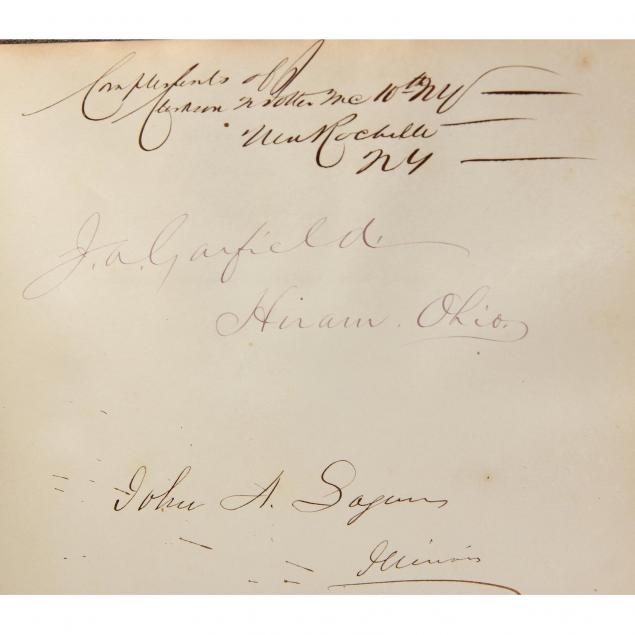 Compliments of
Clarkson N Potter MC 10th NY
New Rochelle
NY
J. A. Garfield.
Hiram. Ohio.
John A. Logan
Illinois